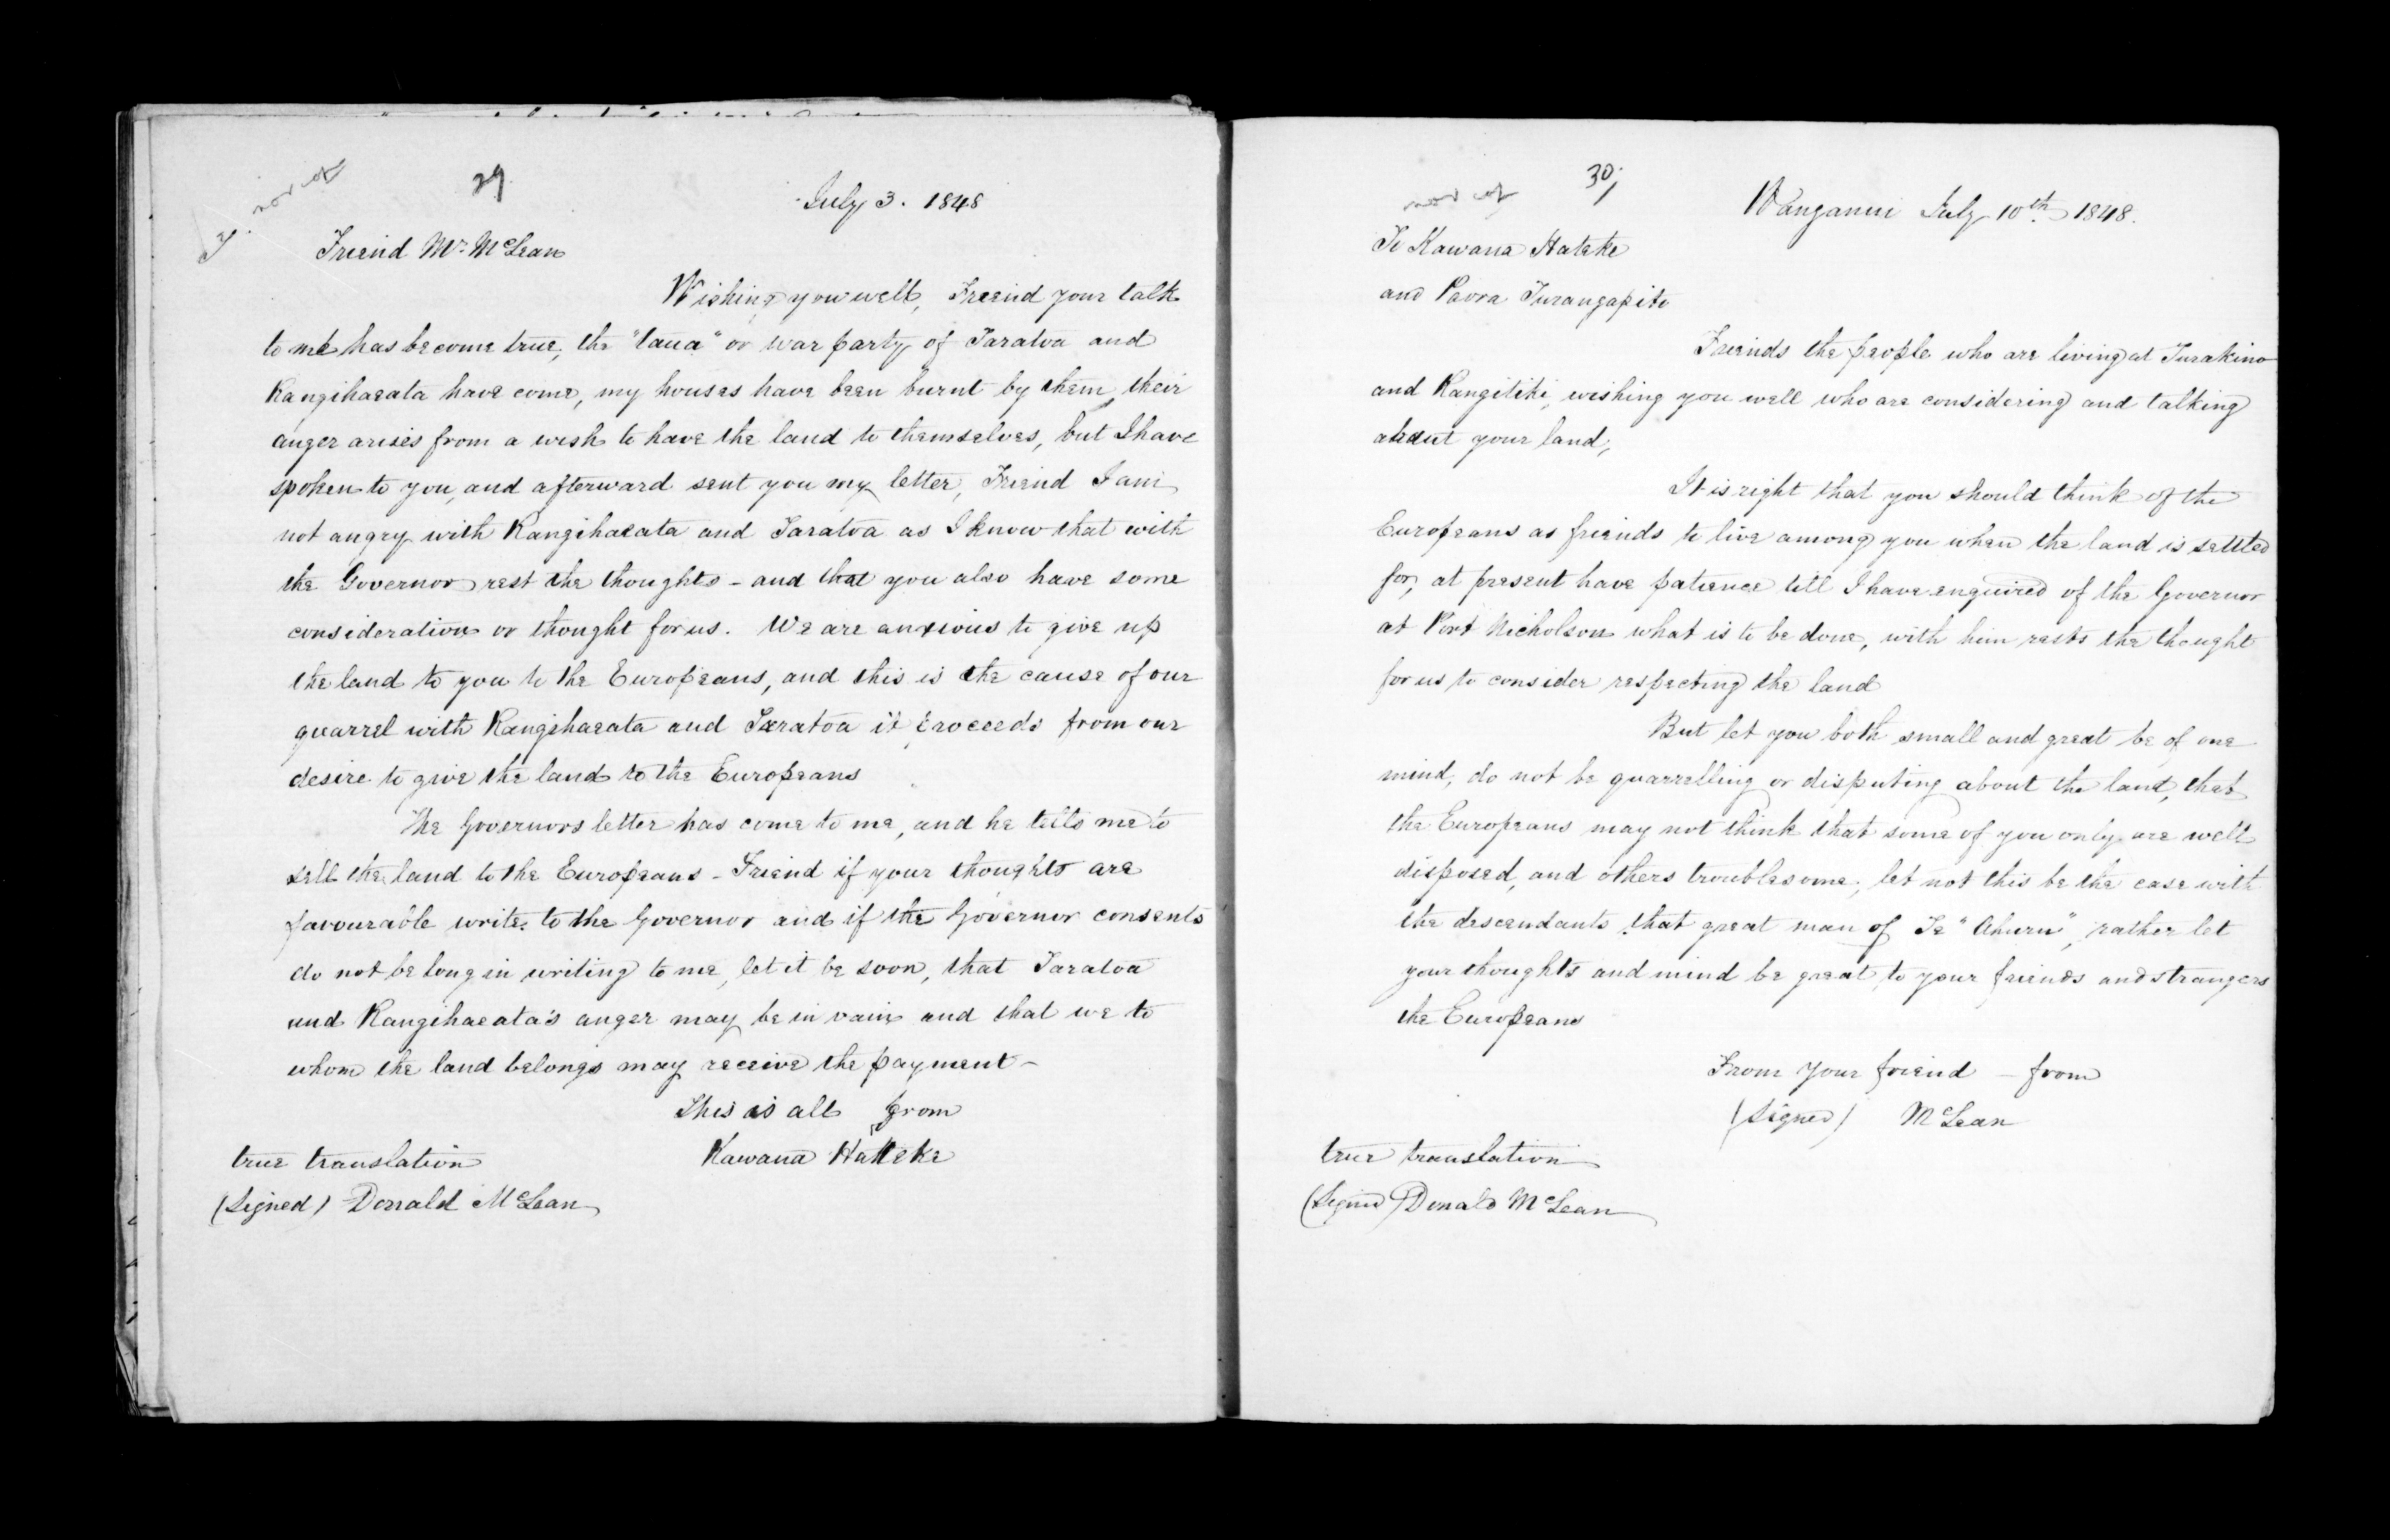 29
July 3. 1848
Friend Mr. McLean
Wishing you well, Freind your talk
to me has become true, the "taua" or war party of Taratoa and
Rangihaeata have come, my houses have been burnt by them, their
anger arises from a wish to have the land to themselves, but I have
spoken to you, and afterward sent you my letter, Friend I am
not angry with Rangihaeata and Taratoa as I know that with
the Governor rest the thoughts - and that you also have some
consideration or thought for us. We are anxious to give up
the land to you to the Europeans, and this is the cause of our
quarrel with Rangihaeata and Taratoa it proceeds from our
desire to give the land to the Europeans
The Governors letter has come to me, and he tells me to
sell the land to the Europeans - Friend if your thoughts are
favourable write to the Governor and if the Governor consents
do not be long in writing to me, let it be soon, that Taratoa
and Rangihaeata's anger may be in vain and that we to
whom the land belongs may receive the payment -
This is all from
Kawana Hakeke
true translation
(Signed) Donald McLean
30
Wanganui July 10th 1848.
To Kawana Hakeke
and Paora Turangapito
Freinds the people who are living at Turakino
and Rangitiki, wishing you well who are considering and talking
about your land,
It is right that you should think of the
Europeans as friends to live among you when the land is settled
for, at present have patience till I have enquired of the Governor
at Port Nicholson what is to be done, with him rests the thought
for us to consider respecting the land
But let you both small and great be of one
mind, do not be quarrelling or disputing about the land, that
the Europeans may not think that some of you only are well
disposed, and others troublesome; let not this be the case with
the descendants that great man of Te "Ahuru", rather let
your thoughts and mind be great to your friends and strangers
the Europeans
From your friend - from
(Signed) McLean
true translation
(Signed) Donald McLean